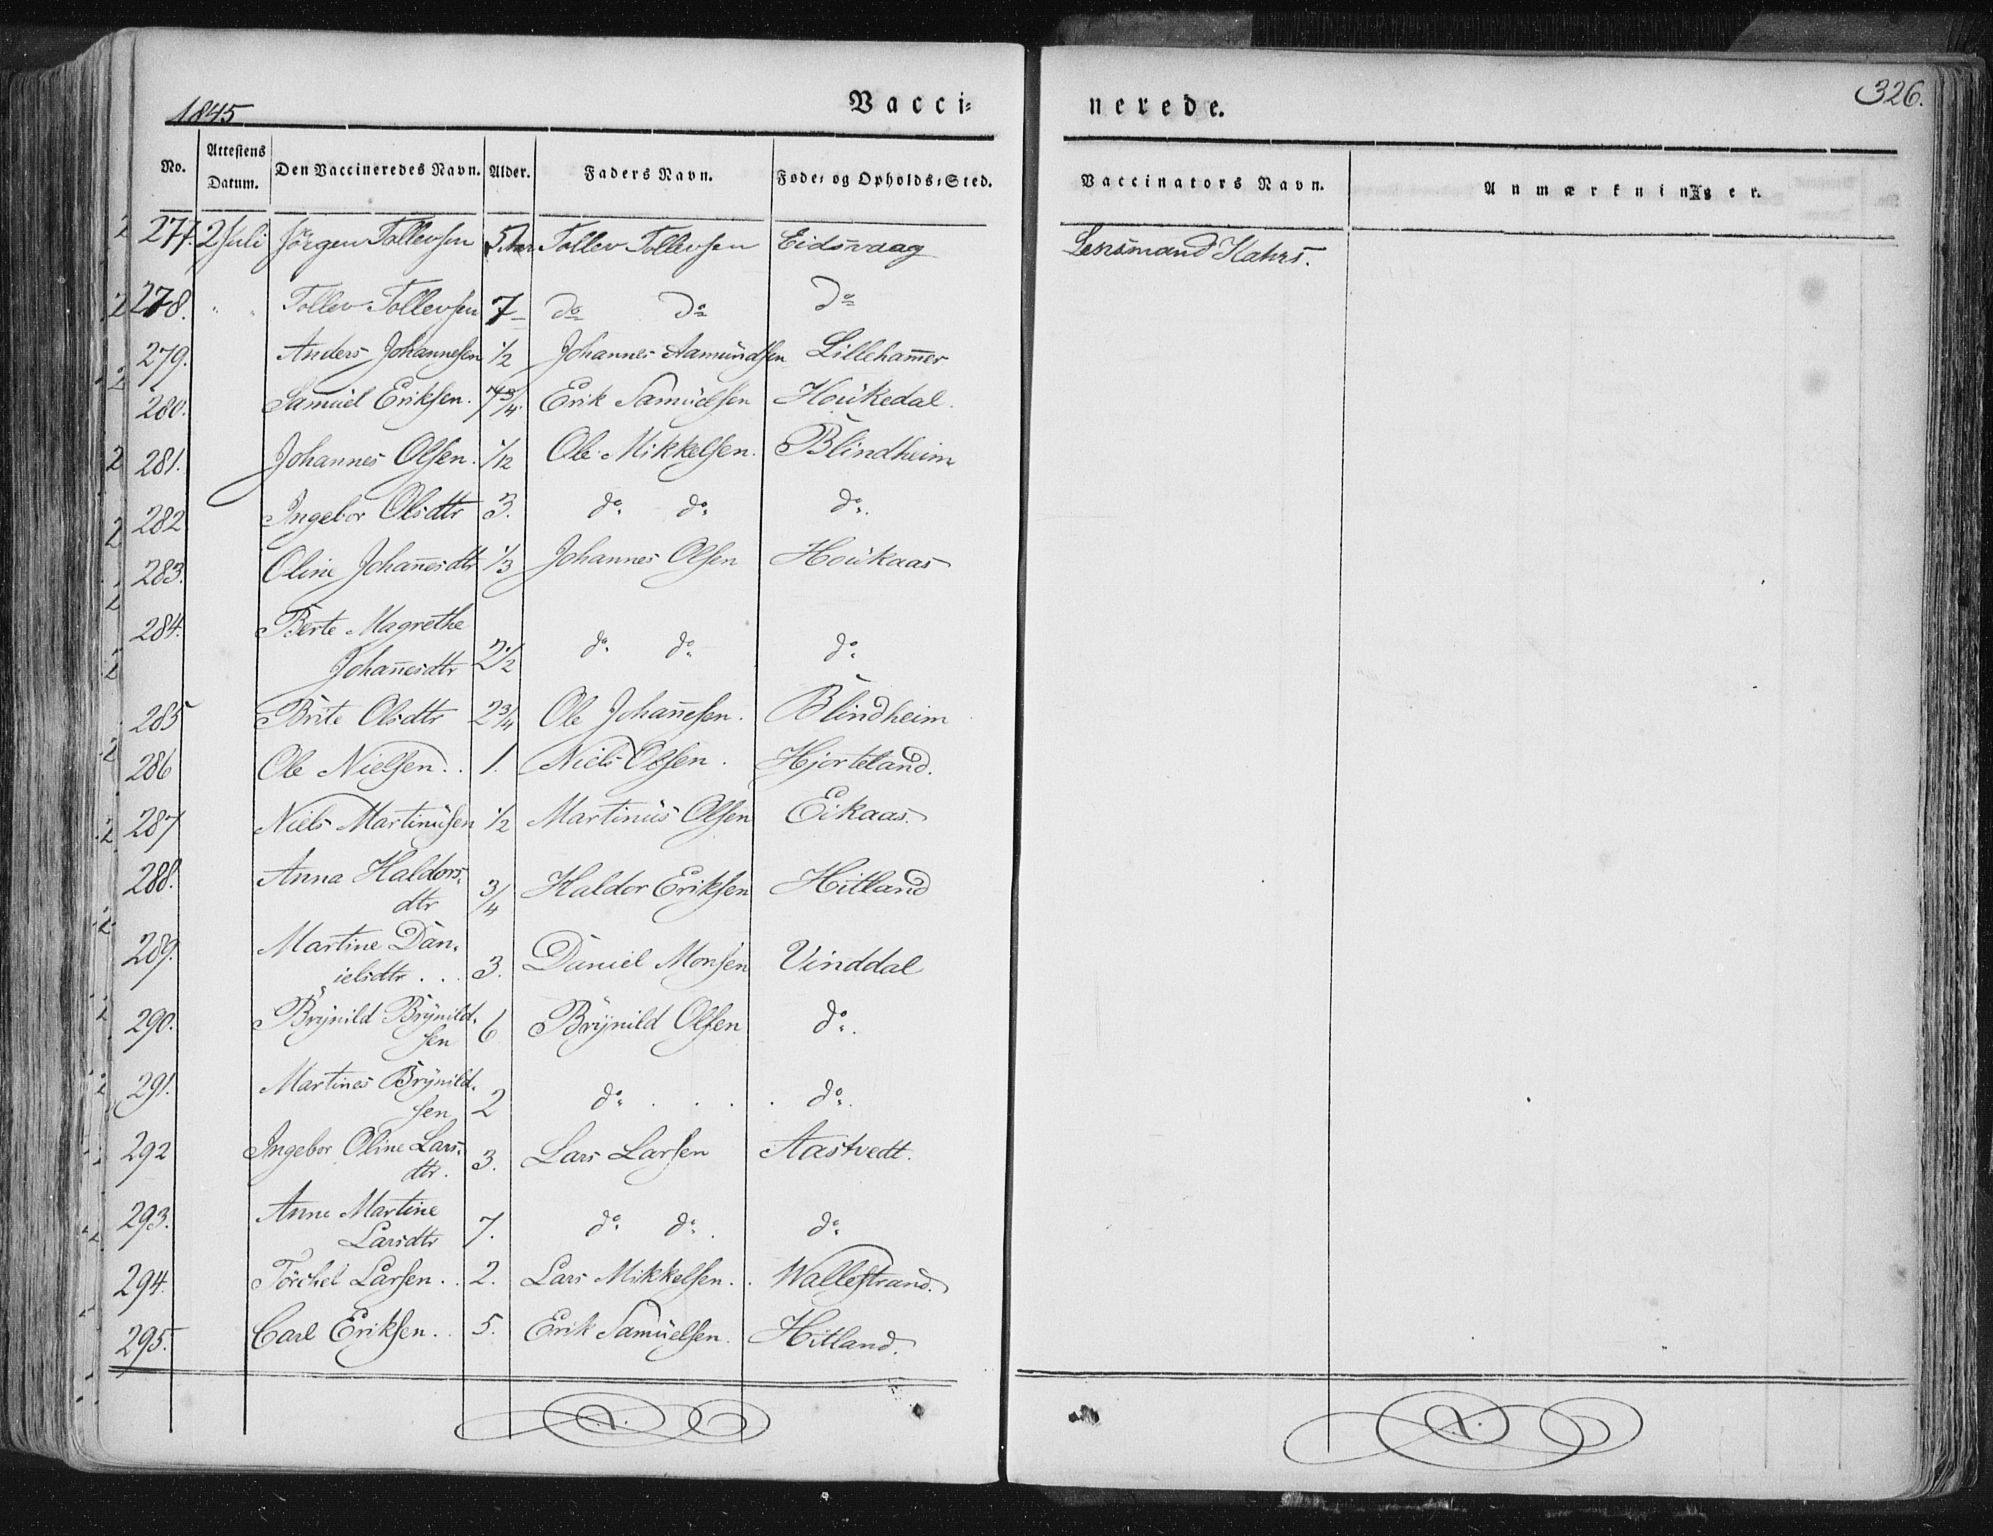 1845 Vacci= nerede. 326.
No. Attestens Datum. Den Vaccineredes Navn. Alder. Faders Navn. Føde= og Opholds=Sted. Vaccinators Navn. Anmærkninger.
277. 2 Juli Jörgen Tollevsen Tollev Tollevsen Eidsvaag Lensmand Kahrs.
278. " " Tollev Tollevsen 7 do do do
279. Anders Johannesen 1/2 Johannes Aamundsen Lillehammer
280. Samuel Eriksen. 7 3/4 Erik Samuelsen Houkedal.
281. Johannes Olsen. 1/12 Ole Mikkelsen. Blindheim
282 Ingebor Olsdtr 3. do. do. do.
283. Oline Johannesdtr 1/3 Johannes Olsen Houkaas
284. Berte Magrethe
Johannesdtr 2 1/2 do. do. do.
285 Brite Olsdtr 2 3/4 Ole Johannesen. Blindheim
286 Ole Nielsen. . 1. Niels Olsen. Hjorteland.
287 Niels Martinusen 1/2 Martinus Olsen Eikaas.
288. Anna Haldors=
dtr 3/4 Haldor Eriksen Hitland
289. Martine Dan=
ielsdtr . . 3. Daniel Monsen Vinddal
290. Brynild Brynild=
sen 6 Brynild Olsen do.
291. Martines Brynild=
sen 2 do. . . . . do.
292 Ingebor Oline Lars=
dtr. 3. Lars Larsen Aastvedt.
293. Anne Martine
Larsdtr 7. do. do. do.
294. Törchel Larsen. . 2. Lars Mikkelsen. . Wallestrand.
295. Carl Eriksen. . 5. Erik Samuelsen. Hitland.